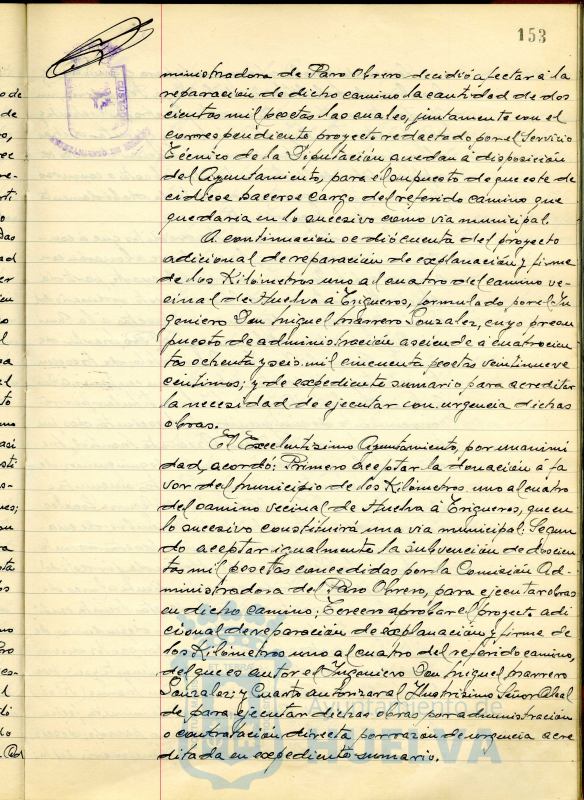 153
ministradora de Paro Obrero decidió afectar á la
reparación de dicho camino la cantidad de dos
cientas mil pesetas las cuales, juntamente con el
correspondiente proyecto redactado por el Servicio
Técnico de la Diputación quedan á disposición
del Ayuntamiento, para el supuesto de que este de
cidiese hacerse cargo del referido camino que
quedaría en lo sucesivo como via municipal.
A continuación se dió cuenta del proyecto
adicional de reparación de explanación y firme
de los Kilómetros uno al cuatro del camino ve-
cinal de Huelva á Trigueros, formulado por el In
geniero Don Miguel Marrero Gonzalez, cuyo presu
puesto de administración asciende á cuatrocien
tas ochenta y seis mil cincuenta pesetas veintinueve
céntimos; y de expediente sumario para acreditar
la necesidad de ejecutar con urgencia dichas
obras.
El Excelentísimo Ayuntamiento, por unanimi
dad, acordó: Primero aceptar la donación á fa
vor del Municipio de los Kilómetros uno al cuatro
del camino vecinal de Huelva á Trigueros, que en
lo sucesivo constituirá una via municipal: Segun
do aceptar igualmente la subvención de doscien
tas mil pesetas concedidas por la Comisión Ad-
ministradora del Paro Obrero, para ejecutar obras
en dicho camino; Tercero aprobar el proyecto adi
cional de reparación de explanación y firme de
los Kilómetros uno al cuatro del referido camino,
del que es autor el Ingeniero Don Miguel Marrero
Gonzalez; y Cuarto autorizar al Ilustrísimo Señor Alcal
de para ejecutar dichas obras por administración
o contratación directa por razón de urgencia acre
ditada en expediente sumario.
Ayuntamiento de
HUELVA